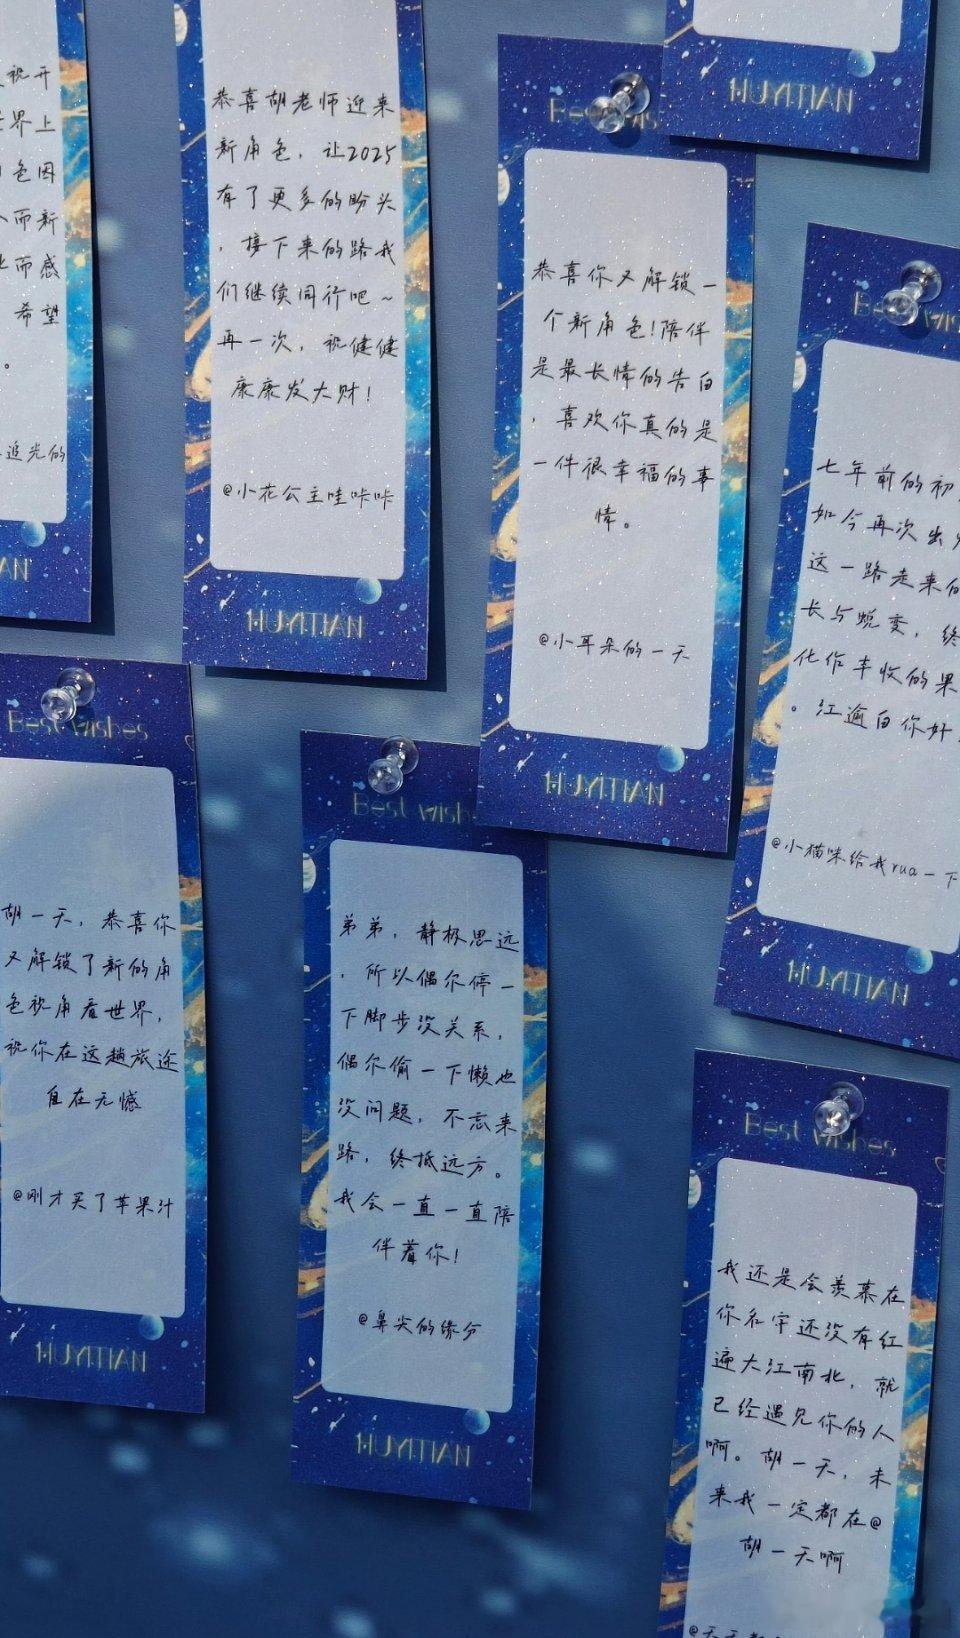 祝开
世界上
色因
而新
而感
希望
。
追光的
恭喜胡老师迎来
新角色，让2025
有了更多的盼头
，接下来的路我
们继续同行吧～
再一次，祝健健
康康发大财！
@小花公主哇咔咔
HUYITIAN
Best wishes
恭喜你又解锁一
个新角色！陪伴
是最长情的告白
，喜欢你真的是
一件很幸福的事
情。
@小耳朵的一天
HUYITIAN
HUYITIAN
Best wishes
七年前的初
如今再次出发
这一路走来的
长与蜕变，终
化作丰收的果
。江逾白你好
@小猫咪给我rua一下
HUYITIAN
Best wishes
胡一天，恭喜你
又解锁了新的角
色视角看世界，
祝你在这趟旅途
自在无憾
@刚才买了苹果汁
HUYITIAN
Best wishes
弟弟，静极思远
，所以偶尔停一
下脚步没关系，
偶尔偷一下懒也
没问题，不忘来
路，终抵远方。
我会一直一直陪
伴着你！
@鼻尖的缘分
HUYITIAN
Best wishes
我还是会羡慕在
你名字还没有红
遍大江南北，就
已经遇见你的人
啊。胡一天，未
来我一定都在@
胡一天啊